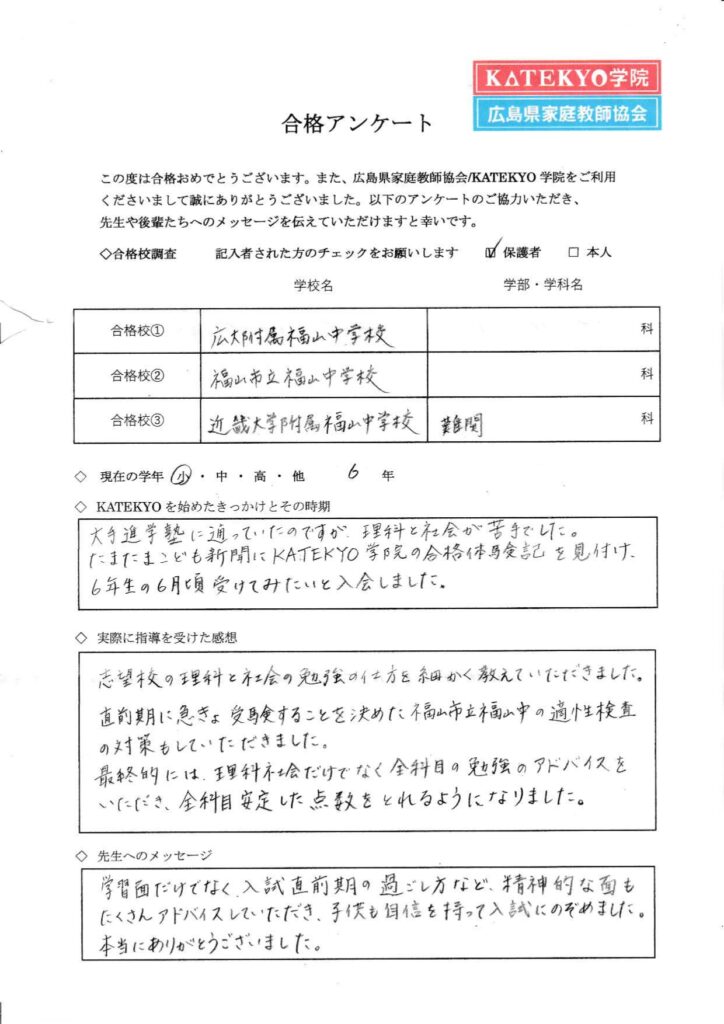 KATEKYO学院
広島県家庭教師協会
合格アンケート
この度は合格おめでとうございます。また、広島県家庭教師協会/KATEKYO 学院をご利用
くださいまして誠にありがとうございました。以下のアンケートのご協力いただき、
先生や後輩たちへのメッセージを伝えていただけますと幸いです。
◇合格校調査 記入者された方のチェックをお願いします ☑ 保護者 □ 本人
学校名 学部・学科名
合格校① 広大附属福山中学校 科
合格校② 福山市立福山中学校 科
合格校③ 近畿大学附属福山中学校 難関 科
◇ 現在の学年 小・中・高・他 6 年
◇ KATEKYO を始めたきっかけとその時期
大手進学塾に通っていたのですが、理科と社会が苦手でした。
たまたまこども新聞にKATEKYO学院の合格体験記を見付け、
6年生の6月頃受けてみたいと入会しました。
◇ 実際に指導を受けた感想
志望校の理科と社会の勉強の仕方を細かく教えていただきました。
直前期に急きょ受験することを決めた福山市立福山中の適性検査
の対策もしていただきました。
最終的には、理科社会だけでなく全科目の勉強のアドバイスを
いただき、全科目安定した点数をとれるようになりました。
◇ 先生へのメッセージ
学習面だけでなく、入試直前期の過ごし方など、精神的な面も
たくさんアドバイスしていただき、子供も自信を持って入試にのぞめました。
本当にありがとうございました。